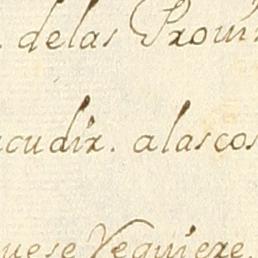 delas Provin
acudir. alascos
uese Requiere